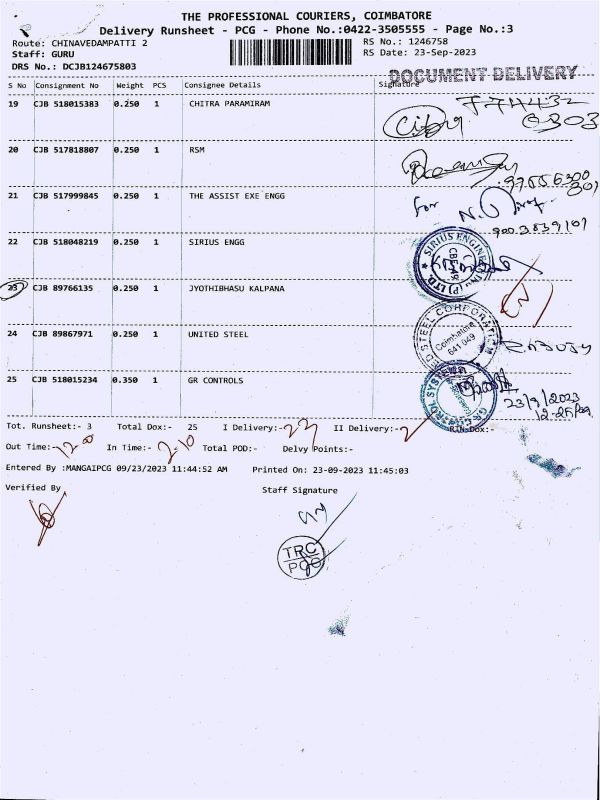 THE PROFESSIONAL COURIERS, COIMBATORE
Delivery Runsheet - PCG - Phone No.:0422-3505555 - Page No.:3
Route: CHINAVEDAMPATTI 2
RS No.: 1246758
Staff: GURU
RS Date: 23-Sep-2023
DRS No.: DCJB124675803
DOCUMENT DELIVERY
S No Consignment No Weight PCS Consignee Details Signature
19 CJB 518015383 0.250 1 CHITRA PARAMIRAM
20 CJB 517818807 0.250 1 RSM
21 CJB 517999845 0.250 1 THE ASSIST EXE ENGG
for
22 CJB 518048219 0.250 1 SIRIUS ENGG
23 CJB 89766135 0.250 1 JYOTHIBHASU KALPANA
24 CJB 89867971 0.250 1 UNITED STEEL
STEEL CORPORATION
Coimbatore
641 049
25 CJB 518015234 0.350 1 GR CONTROLS
23/9/2023
Tot. Runsheet:- 3 Total Dox:- 25 I Delivery:- 23 II Delivery:- 2 Rtn.Dox:-
Out Time:- 12.00 In Time:- 2.10 Total POD:- Delvy Points:-
Entered By :MANGAIPCG 09/23/2023 11:44:52 AM Printed On: 23-09-2023 11:45:03
Verified By Staff Signature
TRC